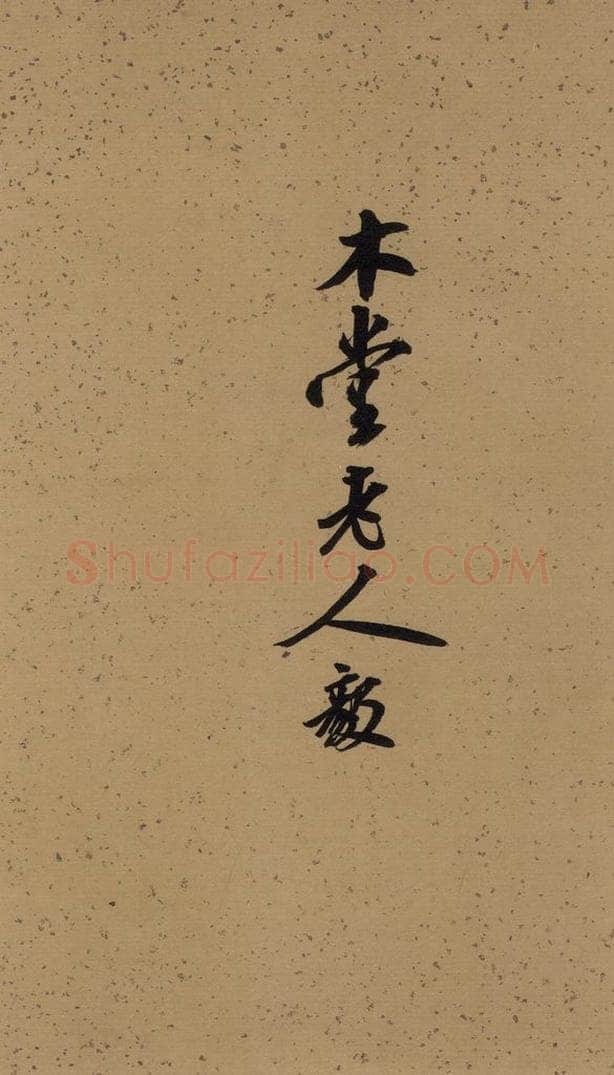 木堂老人毅
Shufaziliao.COM